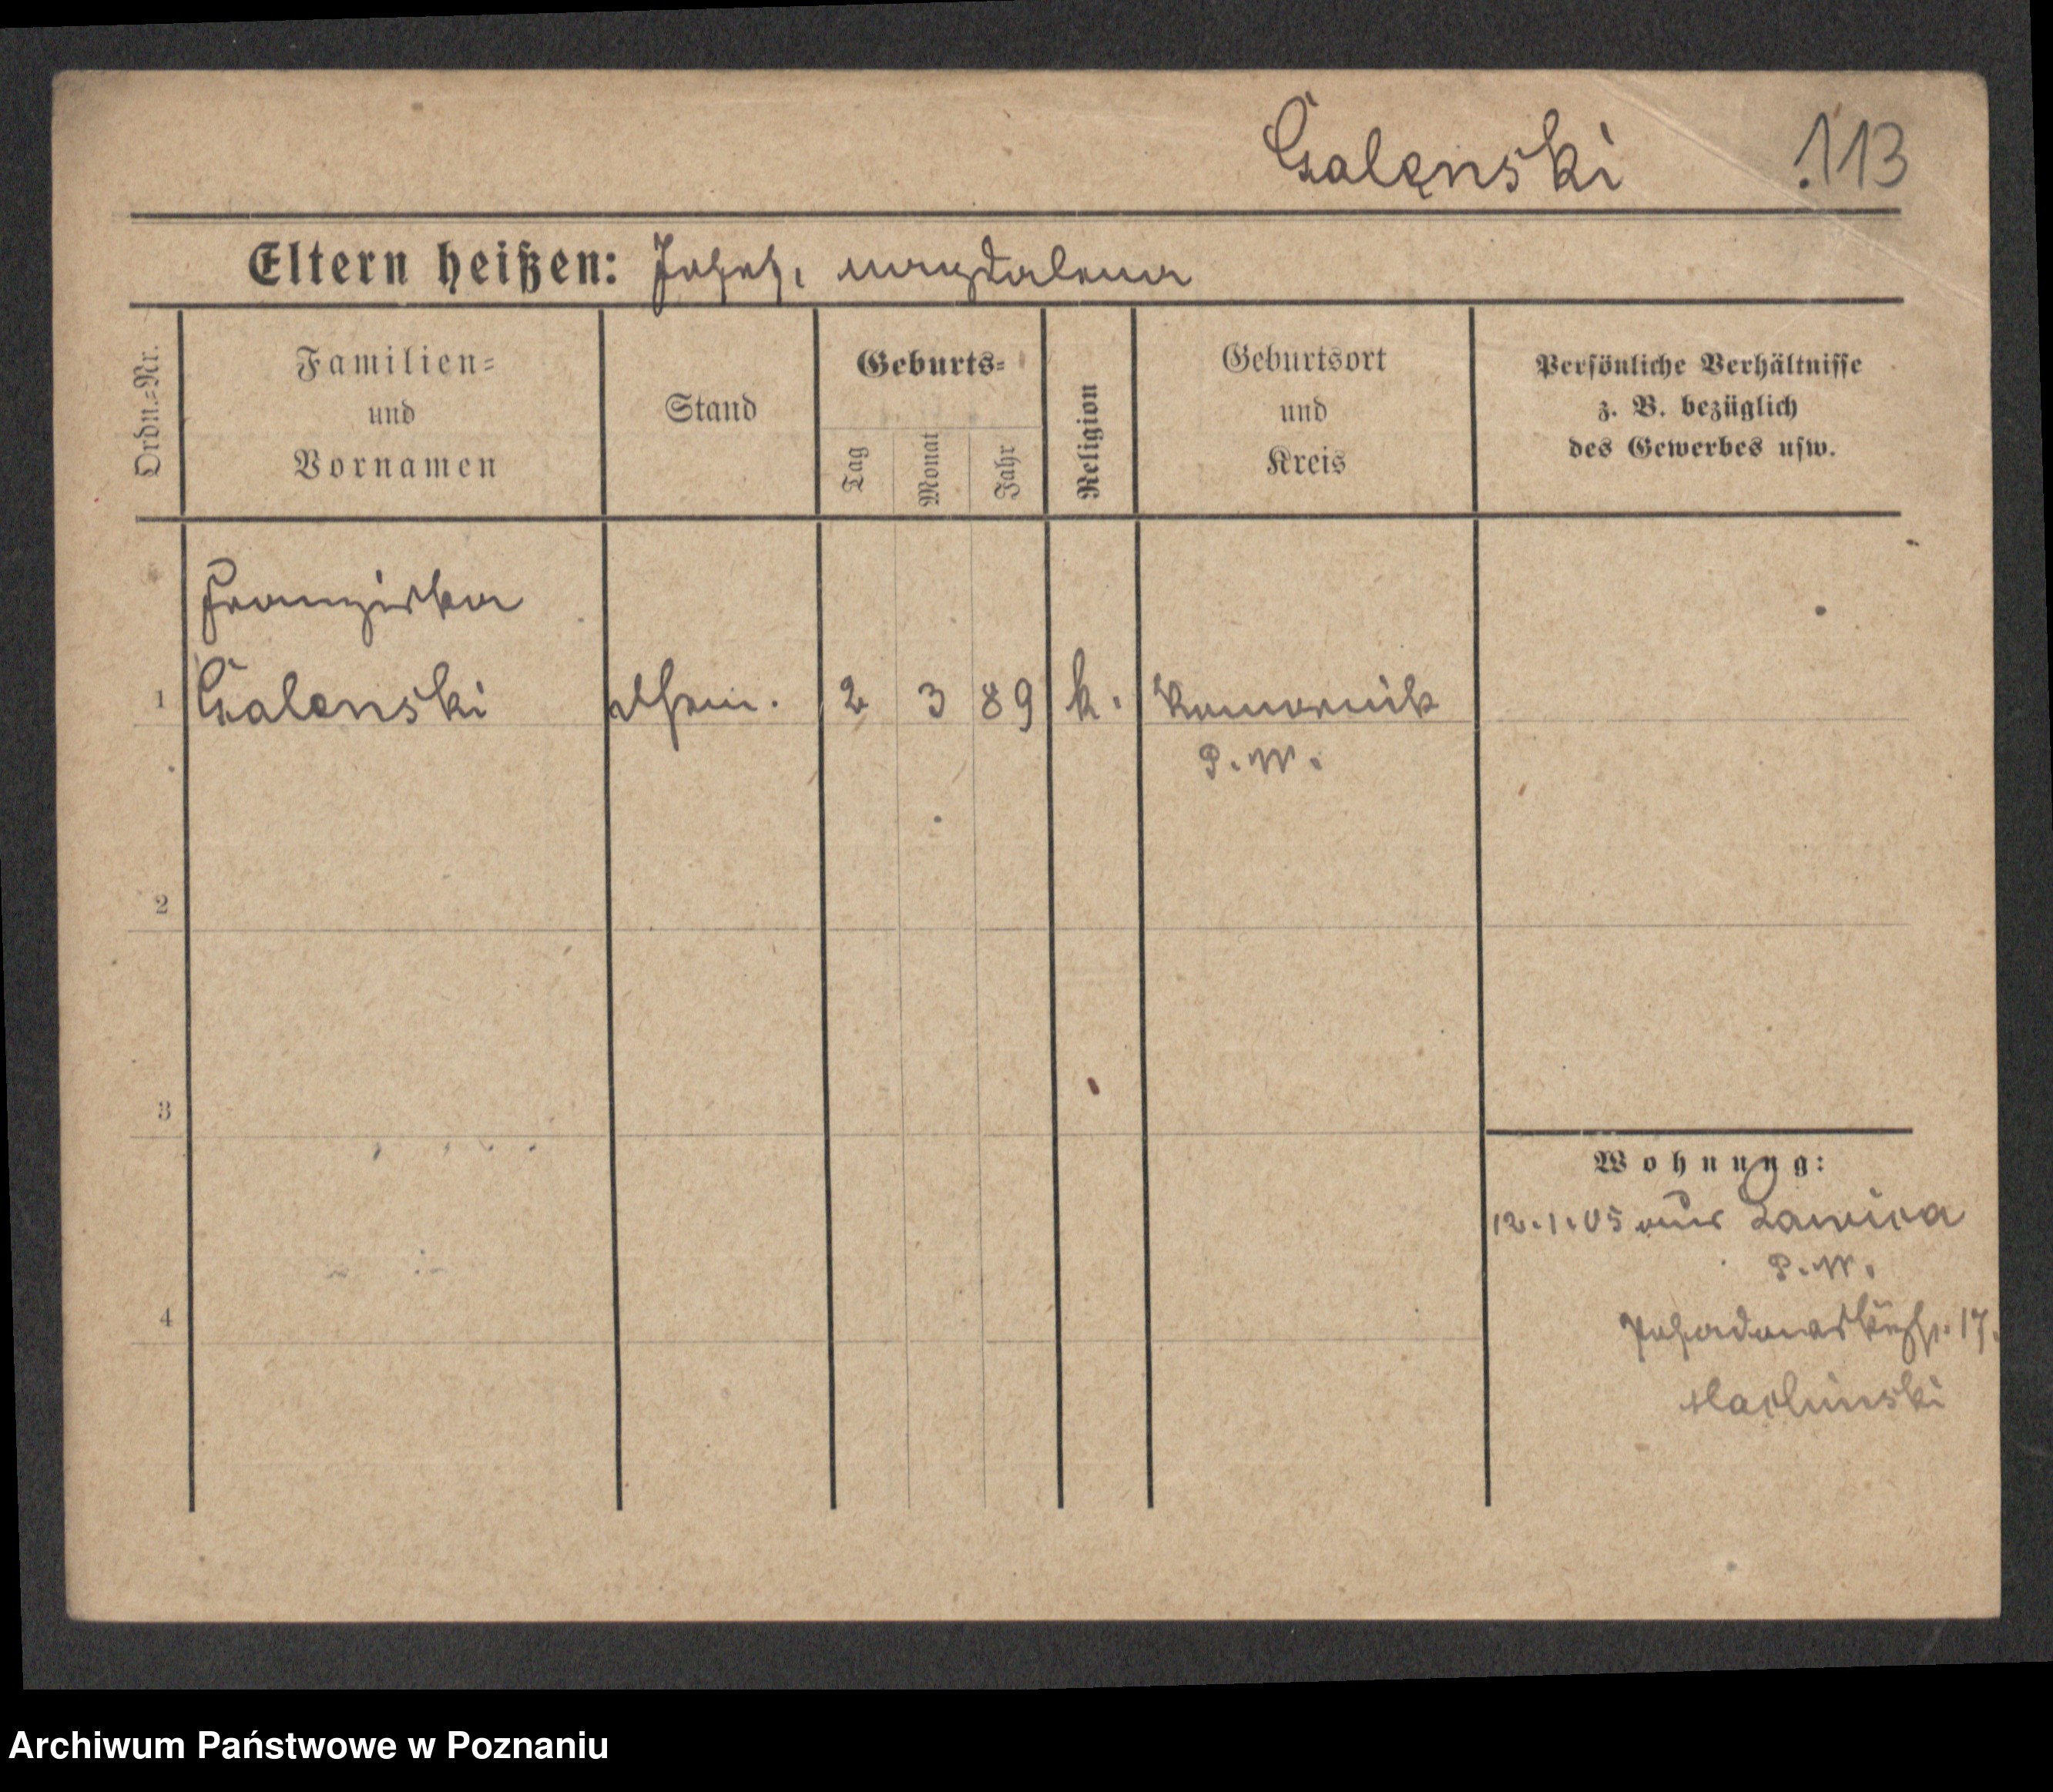 Galenski 113
Eltern heißen: Joseph, Magdalena
Ordn.=Nr.
Familien=
und
Vornamen
Stand
Geburts=
Tag
Monat
Jahr
Religion
Geburtsort
und
Kreis
Persönliche Verhältnisse
z. B. bezüglich
des Gewerbes usw.
Franziska
1 Galenski 2 3 89 k. Komornik
P. W.
2
3
4
Wohnung:
12.1.05 aus Lawica
P. W.
17.
Archiwum Państwowe w Poznaniu